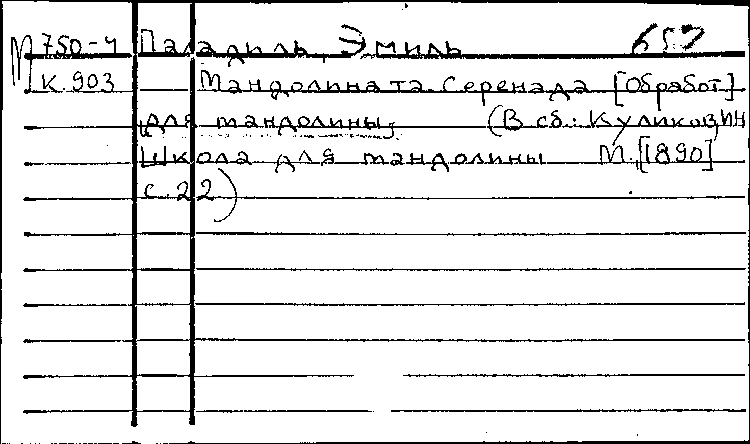 М 750-4 Паладиль, Эмиль 657
К 903 Мандолината. Серенада [Обработ]
для мандолины; (В сб.: Куликов, ИН
Школа для мандолины М, [1890]
с. 22)